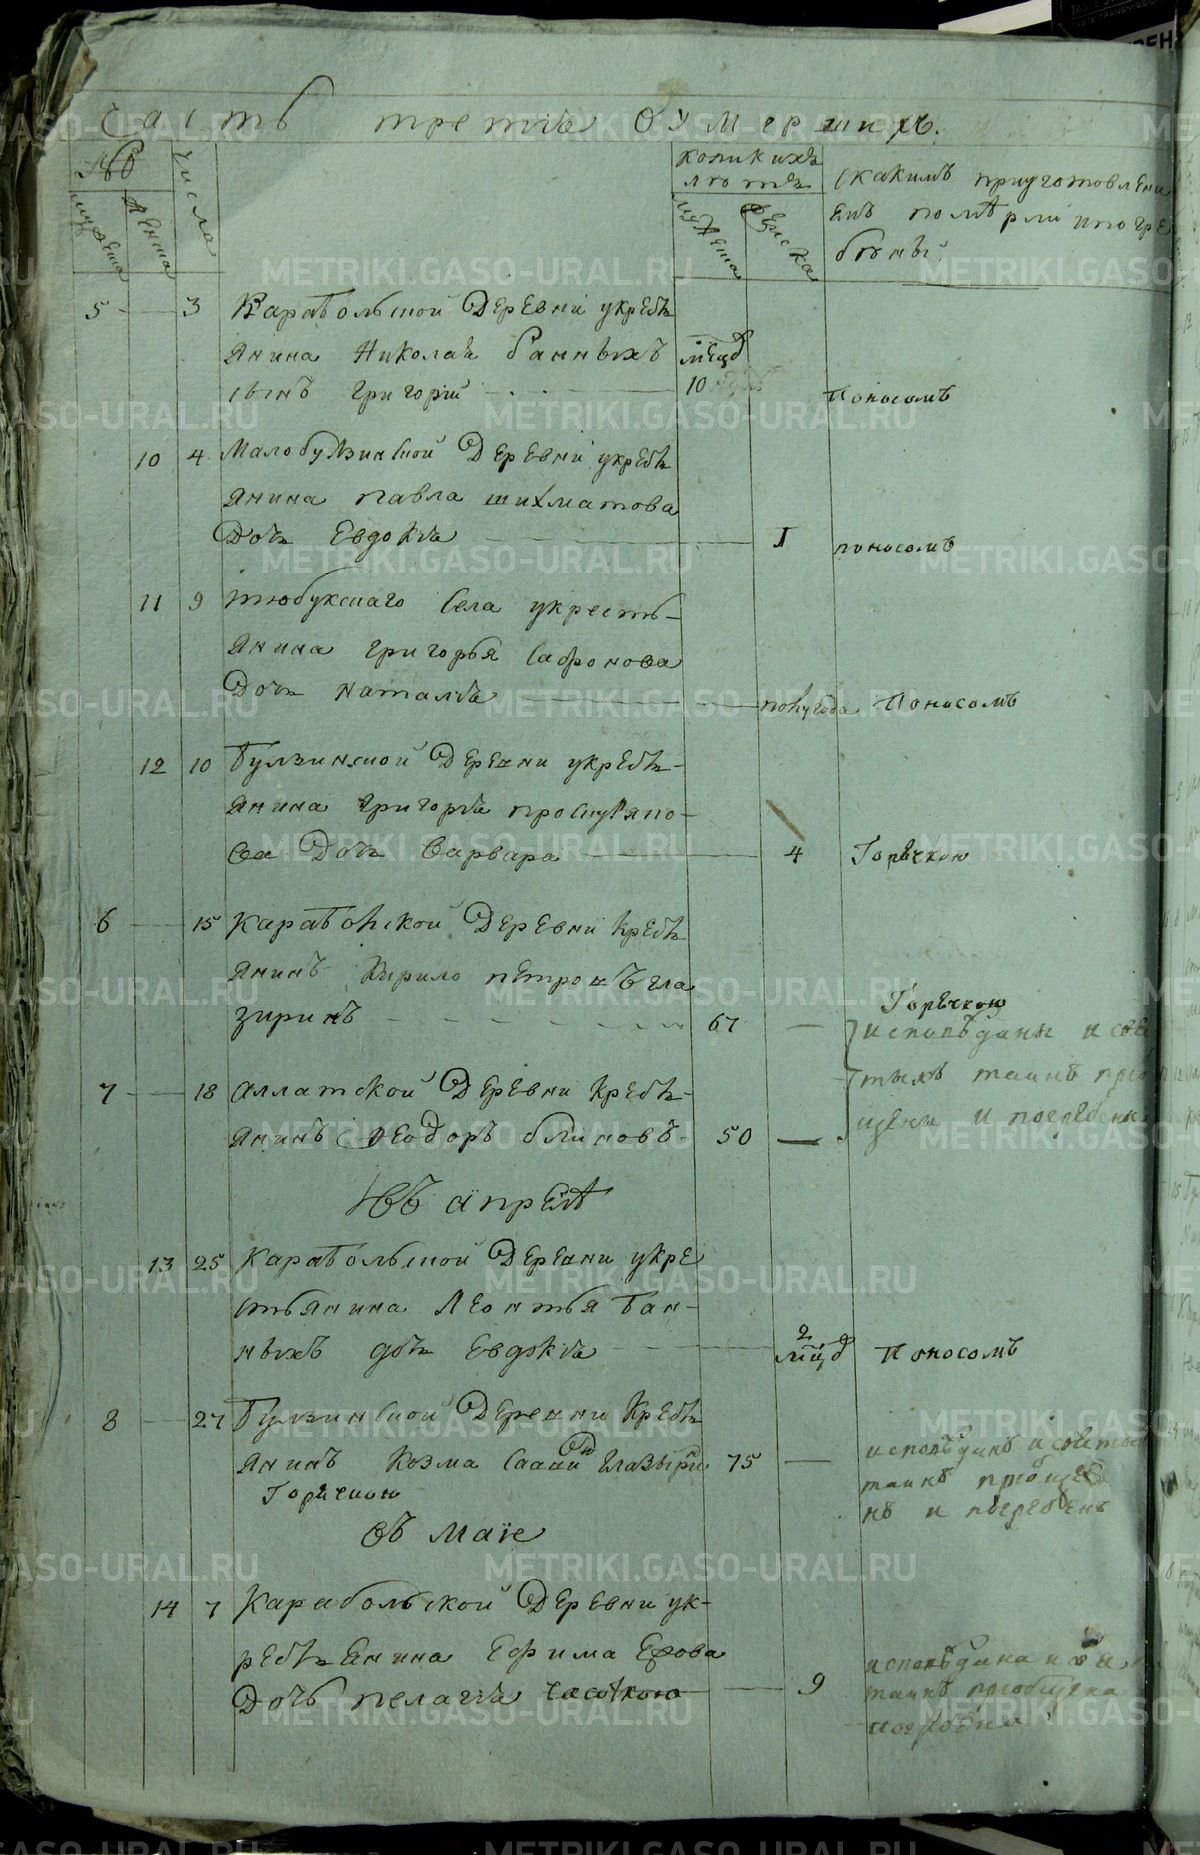 часть третіа оумершихъ.
№
мужеска
женска
числа
коликихъ
лѣтъ
мужеска
женска
скакимъ приуготовлени
емъ померли ипогре
бены
5 3 Карабольской деревни укресть
янина Николаа банныхъ мѣцъ
сынъ григорій 10 поносомъ
10 4 Малобулзинской деревни укресть
янина павла шихматова
дочь Евдокіа 1 поносомъ
11 9 тюбукскаго села укресть-
янина григорья сафронова
дочь наталіа полугода поносомъ
12 10 булзинской деревни укресть-
янина григоріа
ва дочь варвара 4 Горячкою
6 15 карабольской деревни кресть
янинъ кирило петровъ гла
зиринъ 67 Горячкою
исповѣданы и свя
тыхъ таинъ прио
щены и погребены
7 18 аллатской деревни кресть-
янинъ Феодоръ блиновъ 50
въ апрелѣ
13 25 карабольской деревни укре
стьянина Леонтья бан-
ныхъ дочь евдокіа 2 мѣцъ поносомъ
8 27 булзинской деревни кресть
янинъ козма саввинъ глазыри 75
Горячкою
исповѣданъ и святы
таинъ приобще
нъ и погребенъ
въ маіе
14 7 карабольской деревни ук-
рестьянина ефима
дочь пелагіа чахоткою 9
исповѣдана и
таинъ приобщена
погребена
METRIKI.GASO-URAL.RU